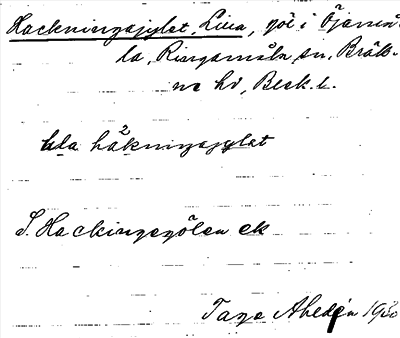 Hackningagylet, Lilla, göl i Öjamå-
la, Ringamåla sn, Bräk-
ne hd, Blek. l.
håkningagylet
S. Hackingegölen ek
Tage Ahldén 1930